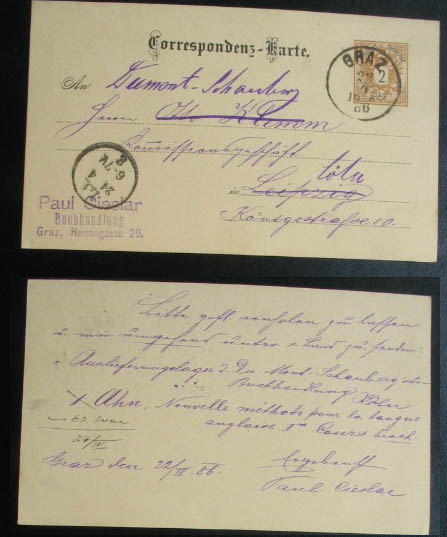 Correspondenz-Karte.
2
GRAZ
86
An Dumont-Schauberg
Herrn Otto Klemm
Commissionsgeschäft
in Leipzig Cöln
Königsstrasse 10.
24 4
6-7N
Paul Cieslar
Buchhandlung
Graz, Herrengasse 29.
Bitte gefl. einholen zu lassen
u. mir umgehend unter x Band zu senden:
v. Auslieferungslager d. Du Mont-Schauberg'schen
Buchhandlung Köln
1 Ahn, Nouvelle méthode pour la langue
anglaise I. Cours broch.
24/IV
Graz den 22/IV. 86.
Ergebenst
Paul Cieslar